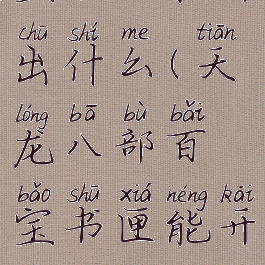 chū shí me tiān
出什么(天
lóng bā bù bǎi
龙八部百
bǎo shū xiá néng kāi
宝书匣能开